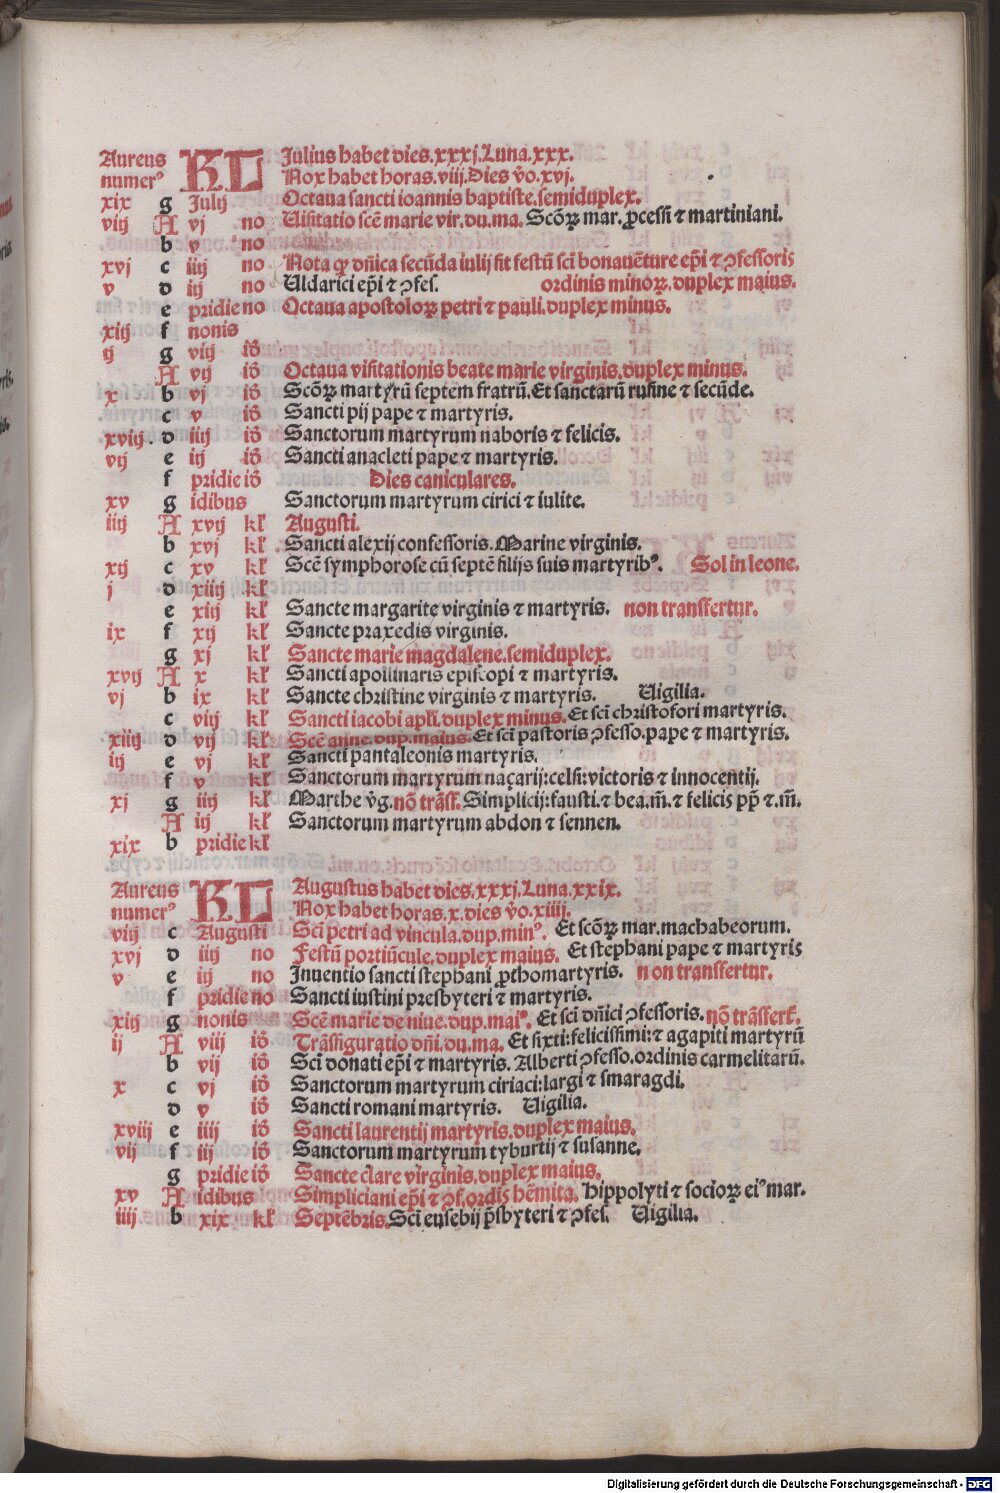 Aureus KL Julius habet dies.xxxj.Luna.xxx.
numerꝰ Nox habet horas.viij.Dies v̄o.xvj.
xix g Julij Octaua sancti ioannis baptiste.semiduplex.
viij A vj no Uisitatio scē marie vir.du.ma. Scōꝝ mar.ꝓcessi ⁊ martiniani.
b v no
xvj c iiij no Nota ꝙ dn̄ica secūda iulij fit festū sci bonauēture ep̄i ⁊ ꝯfessoris
v d iij no Uldarici ep̄i ⁊ ꝯfes. ordinis minoꝝ.duplex maius.
e pridie no Octaua apostoloꝝ petri ⁊ pauli.duplex minus.
xiij f nonis
ij g viij id̄
A vij id̄ Octaua visitationis beate marie virginis.duplex minus.
x b vj id̄ Scōꝝ martyrū septem fratrū.Et sanctarū rufine ⁊ secūde.
c v id̄ Sancti pij pape ⁊ martyris.
xviij. d iiij id̄ Sanctorum martyrum naboris ⁊ felicis.
vij e iij id̄ Sancti anacleti pape ⁊ martyris.
f pridie id̄ Dies caniculares.
xv g idibus Sanctorum martyrum cirici ⁊ iulite.
iiij A xvij kł Augusti.
b xvj kł Sancti alexij confessoris.Marine virginis.
xij c xv kł Scē symphorose cū septē filijs suis martyribꝰ. Sol in leone.
j d xiiij kł
e xiij kł Sancte margarite virginis ⁊ martyris. non transfertur.
ix f xij kł Sancte praxedis virginis.
g xj kł Sancte marie magdalene.semiduplex.
xvij A x kł Sancti apollinaris episcopi ⁊ martyris.
vj b ix kł Sancte christine virginis ⁊ martyris. Uigilia.
c viij kł Sancti iacobi apli.duplex minus.Et sci christofori martyris.
xiiij d vij kł Scē anne.dup.maius.Et sci pastoris ꝯfesso.pape ⁊ martyris.
iij e vj kł Sancti pantaleonis martyris.
f v kł Sanctorum martyrum naçarij:celsi:victoris ⁊ innocentij.
xj g iiij kł Marthe v̄g.nō trāsf.Simplicij:fausti.⁊ bea.m̄.⁊ felicis pp̄ ⁊ .m̄.
A iij kł Sanctorum martyrum abdon ⁊ sennen.
xix b pridie kł
Aureus KL Augustus habet dies.xxxj.Luna.xxix.
numerꝰ Nox habet horas.x.dies v̄o.xiiij.
viij c Augusti Sci petri ad vincula.dup.minꝰ. Et scōꝝ mar.machabeorum.
xvj d iiij no Festū portiūcule.duplex maius. Et stephani pape ⁊ martyris
v e iij no Inuentio sancti stephani ꝓthomartyris. non transfertur.
f pridie no Sancti iustini presbyteri ⁊ martyris.
xiij g nonis Scē marie de niue.dup.maiꝰ. Et sci dn̄ici ꝯfessoris.nō trāsfert̄.
ij A viij id̄ Trāsfiguratio dn̄i.du.ma. Et sixti:felicissimi:⁊ agapiti martyrū
b vij id̄ Sci donati ep̄i ⁊ martyris. Alberti ꝯfesso.ordinis carmelitarū.
x c vj id̄ Sanctorum martyrum ciriaci:largi ⁊ smaragdi.
d v id̄ Sancti romani martyris. Uigilia.
xviij e iiij id̄ Sancti laurentij martyris.duplex maius.
vij f iij id̄ Sanctorum martyrum tyburtij ⁊ susanne.
g pridie id̄ Sancte clare virginis.duplex maius.
xv A idibus Simpliciani ep̄i ⁊ ꝯf.ordis hēmita. Hippolyti ⁊ socioꝝ eiꝰ mar.
iiij b xix kł Septēbris.Sci eusebij p̄sbyteri ⁊ ꝯfes. Uigilia.
Digitalisierung gefördert durch die Deutsche Forschungsgemeinschaft - DFG